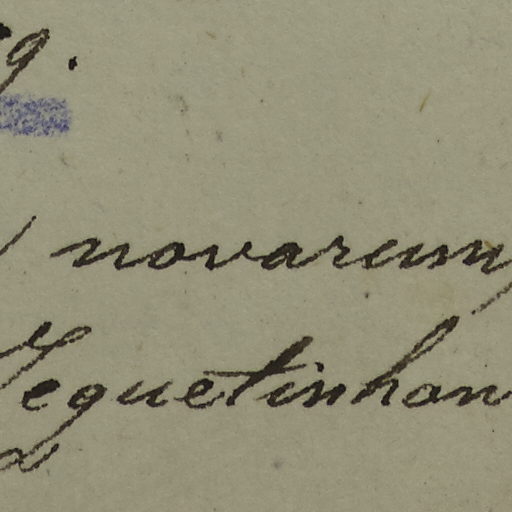 9.
novarum
Jequetinhan